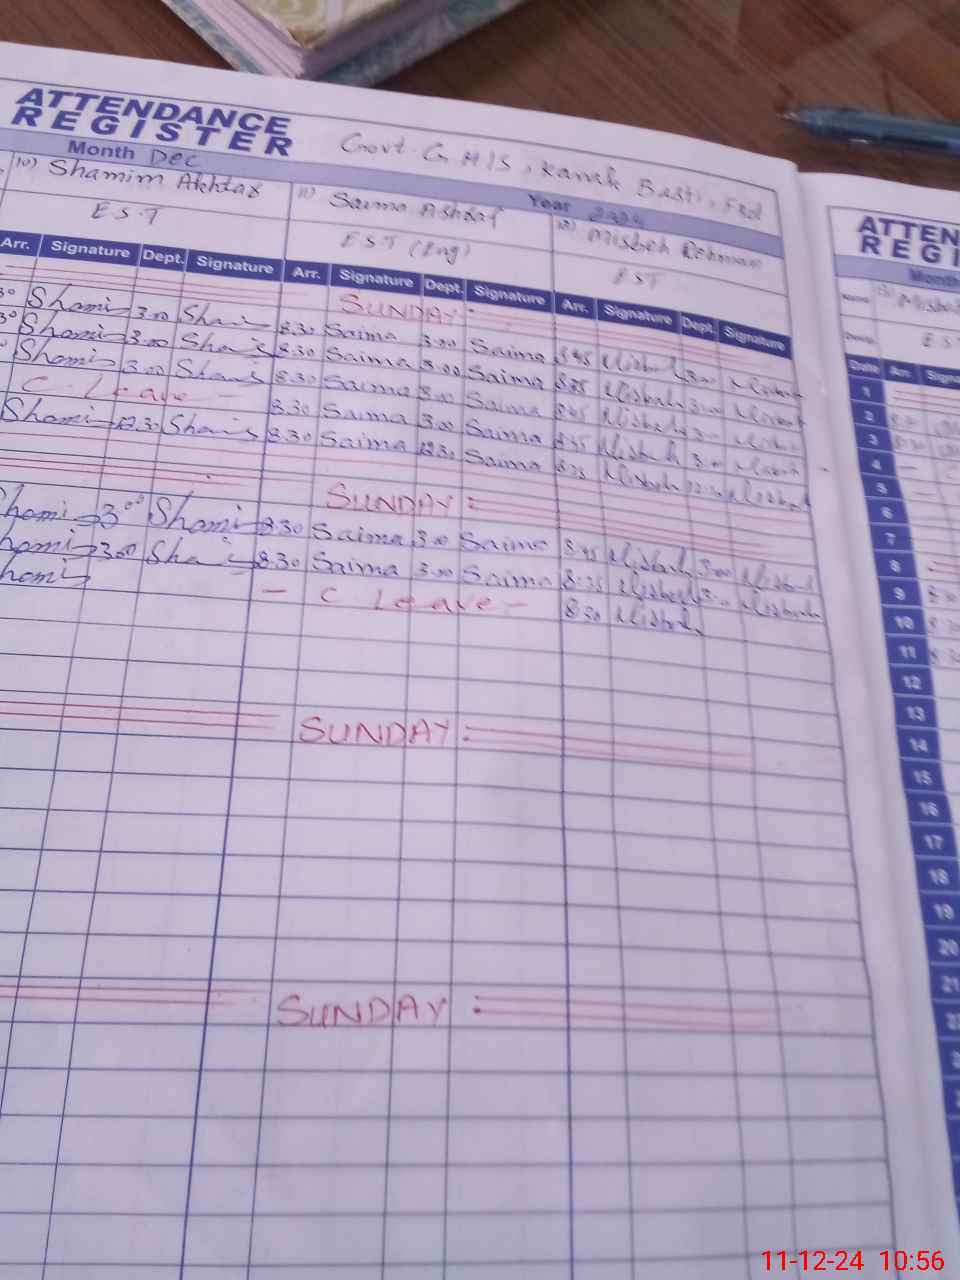 ATTENDANCE
REGISTER
Govt. G.H/S, Kanak Basti, Fsd
Month Dec
Year 2024
10) Shamim Akhtar
11) Saima Ashraf
12) Misbah Rehman
E.S.T
EST (Eng)
EST
Arr. Signature Dept. Signature Arr. Signature Dept. Signature Arr. Signature Dept. Signature
SUNDAY:
Shami 3.00 Shami 8.30 Saima 3.00 Saima 8:45 Misbah 3:00 Misbah
Shami 3.00 Shami 8.30 Saima 3.00 Saima Misbah 3:00 Misbah
Shami 3.00 Shami 8.30 Saima 3.00 Saima 8:45 Misbah Misbah
C. Leave - 8.30 Saima 3.00 Saima 8:35 Misbah 3:00 Misbah
Shami 12.30 Shami 8.30 Saima 12.30 Saima Misbah 12:30 Misbah
SUNDAY:
Shami 3.00 Shami 8.30 Saima 3.00 Saima 8:45 Misbah 3:00 Misbah
Shami 3.00 Shami 8.30 Saima 3.00 Saima 8:35 Misbah Misbah
Shami - C Leave - 8:30 Misbah
SUNDAY:
SUNDAY:
ATTEN
REGI
Month
Name
E.S.T
Date Arr. Signa
1
2
3
4
5
6
7
8
9
10
11
12
13
14
15
16
17
18
19
20
21
11-12-24 10:56